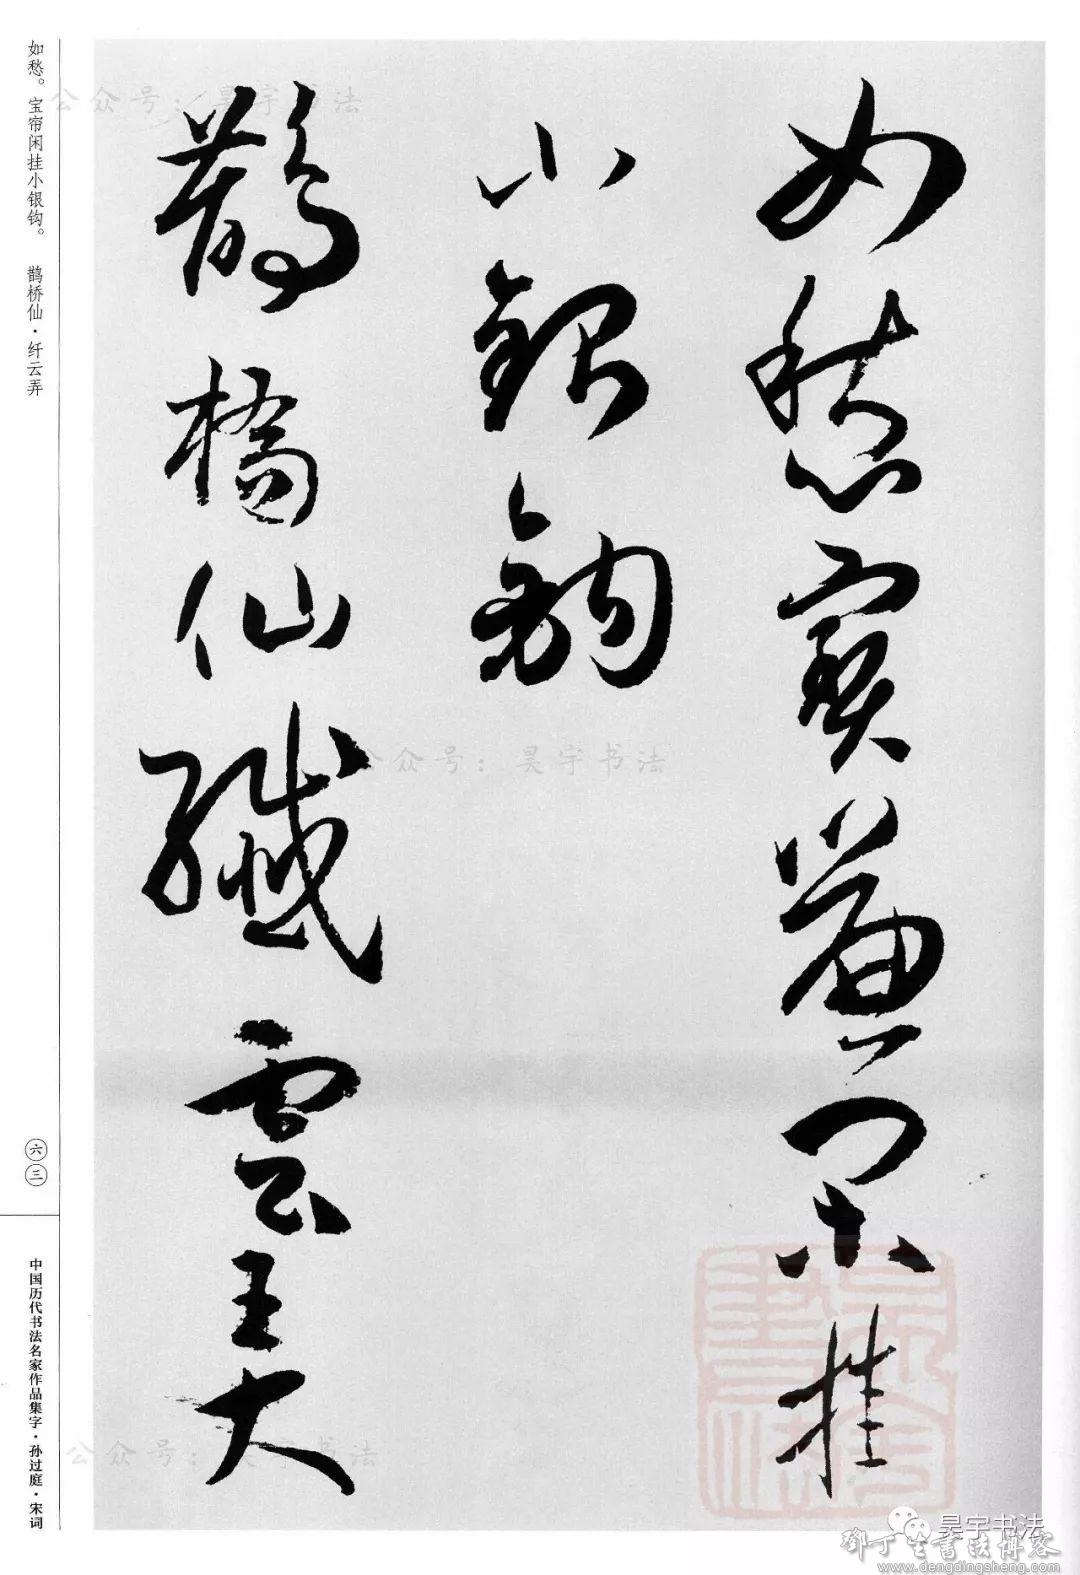 如愁寶簾閑挂
小銀鈎
鵲橋仙纖雲弄
如愁。宝帘闲挂小银钩。 鹊桥仙·纤云弄
六三
中国历代书法名家作品集字·孙过庭·宋词
公众号：昊宇书法
公众号：昊宇书法
公众号：昊宇书法
昊宇书法
邓丁生書法博客
www.dengdingsheng.com